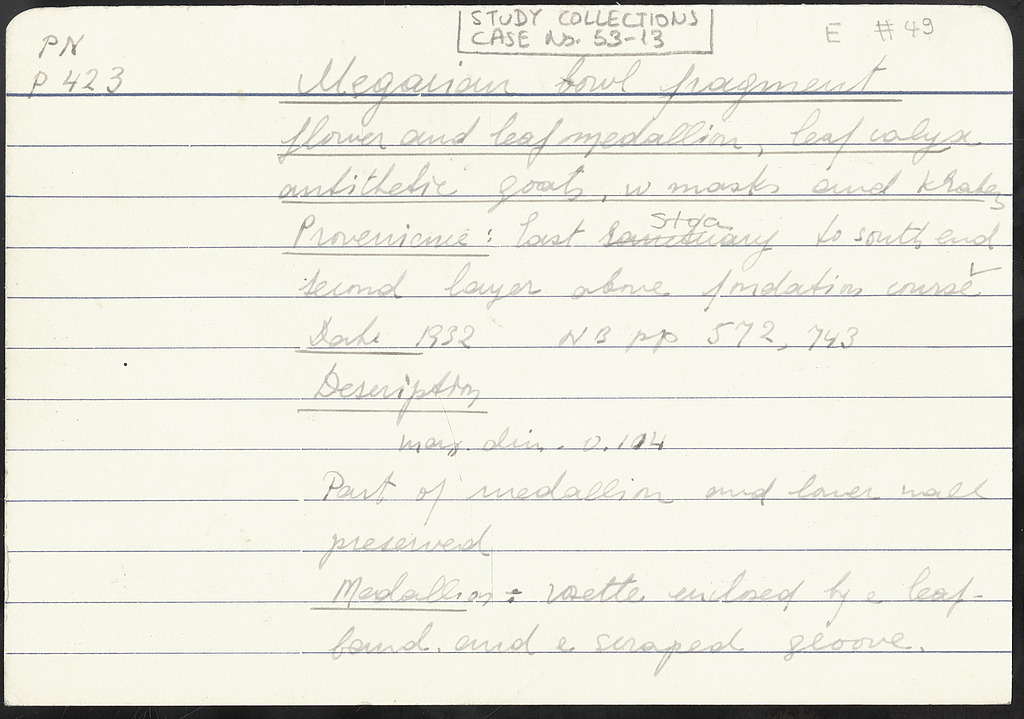 STUDY COLLECTIONS
CASE No. 53-13
E #49
PN
P 423
Megarian bowl fragment
flower and leaf medallion, leaf calyx
antithetic goats, w masks and krater
Provenience: last sanctuary Stoa to south end
second layer above fondation course
Date 1932 NB pp 572, 743
Description
max. dim. 0.104
Part of medallion and lower wall
preserved
Medallion: rosette enclosed by a leaf-
band. and a scraped groove.